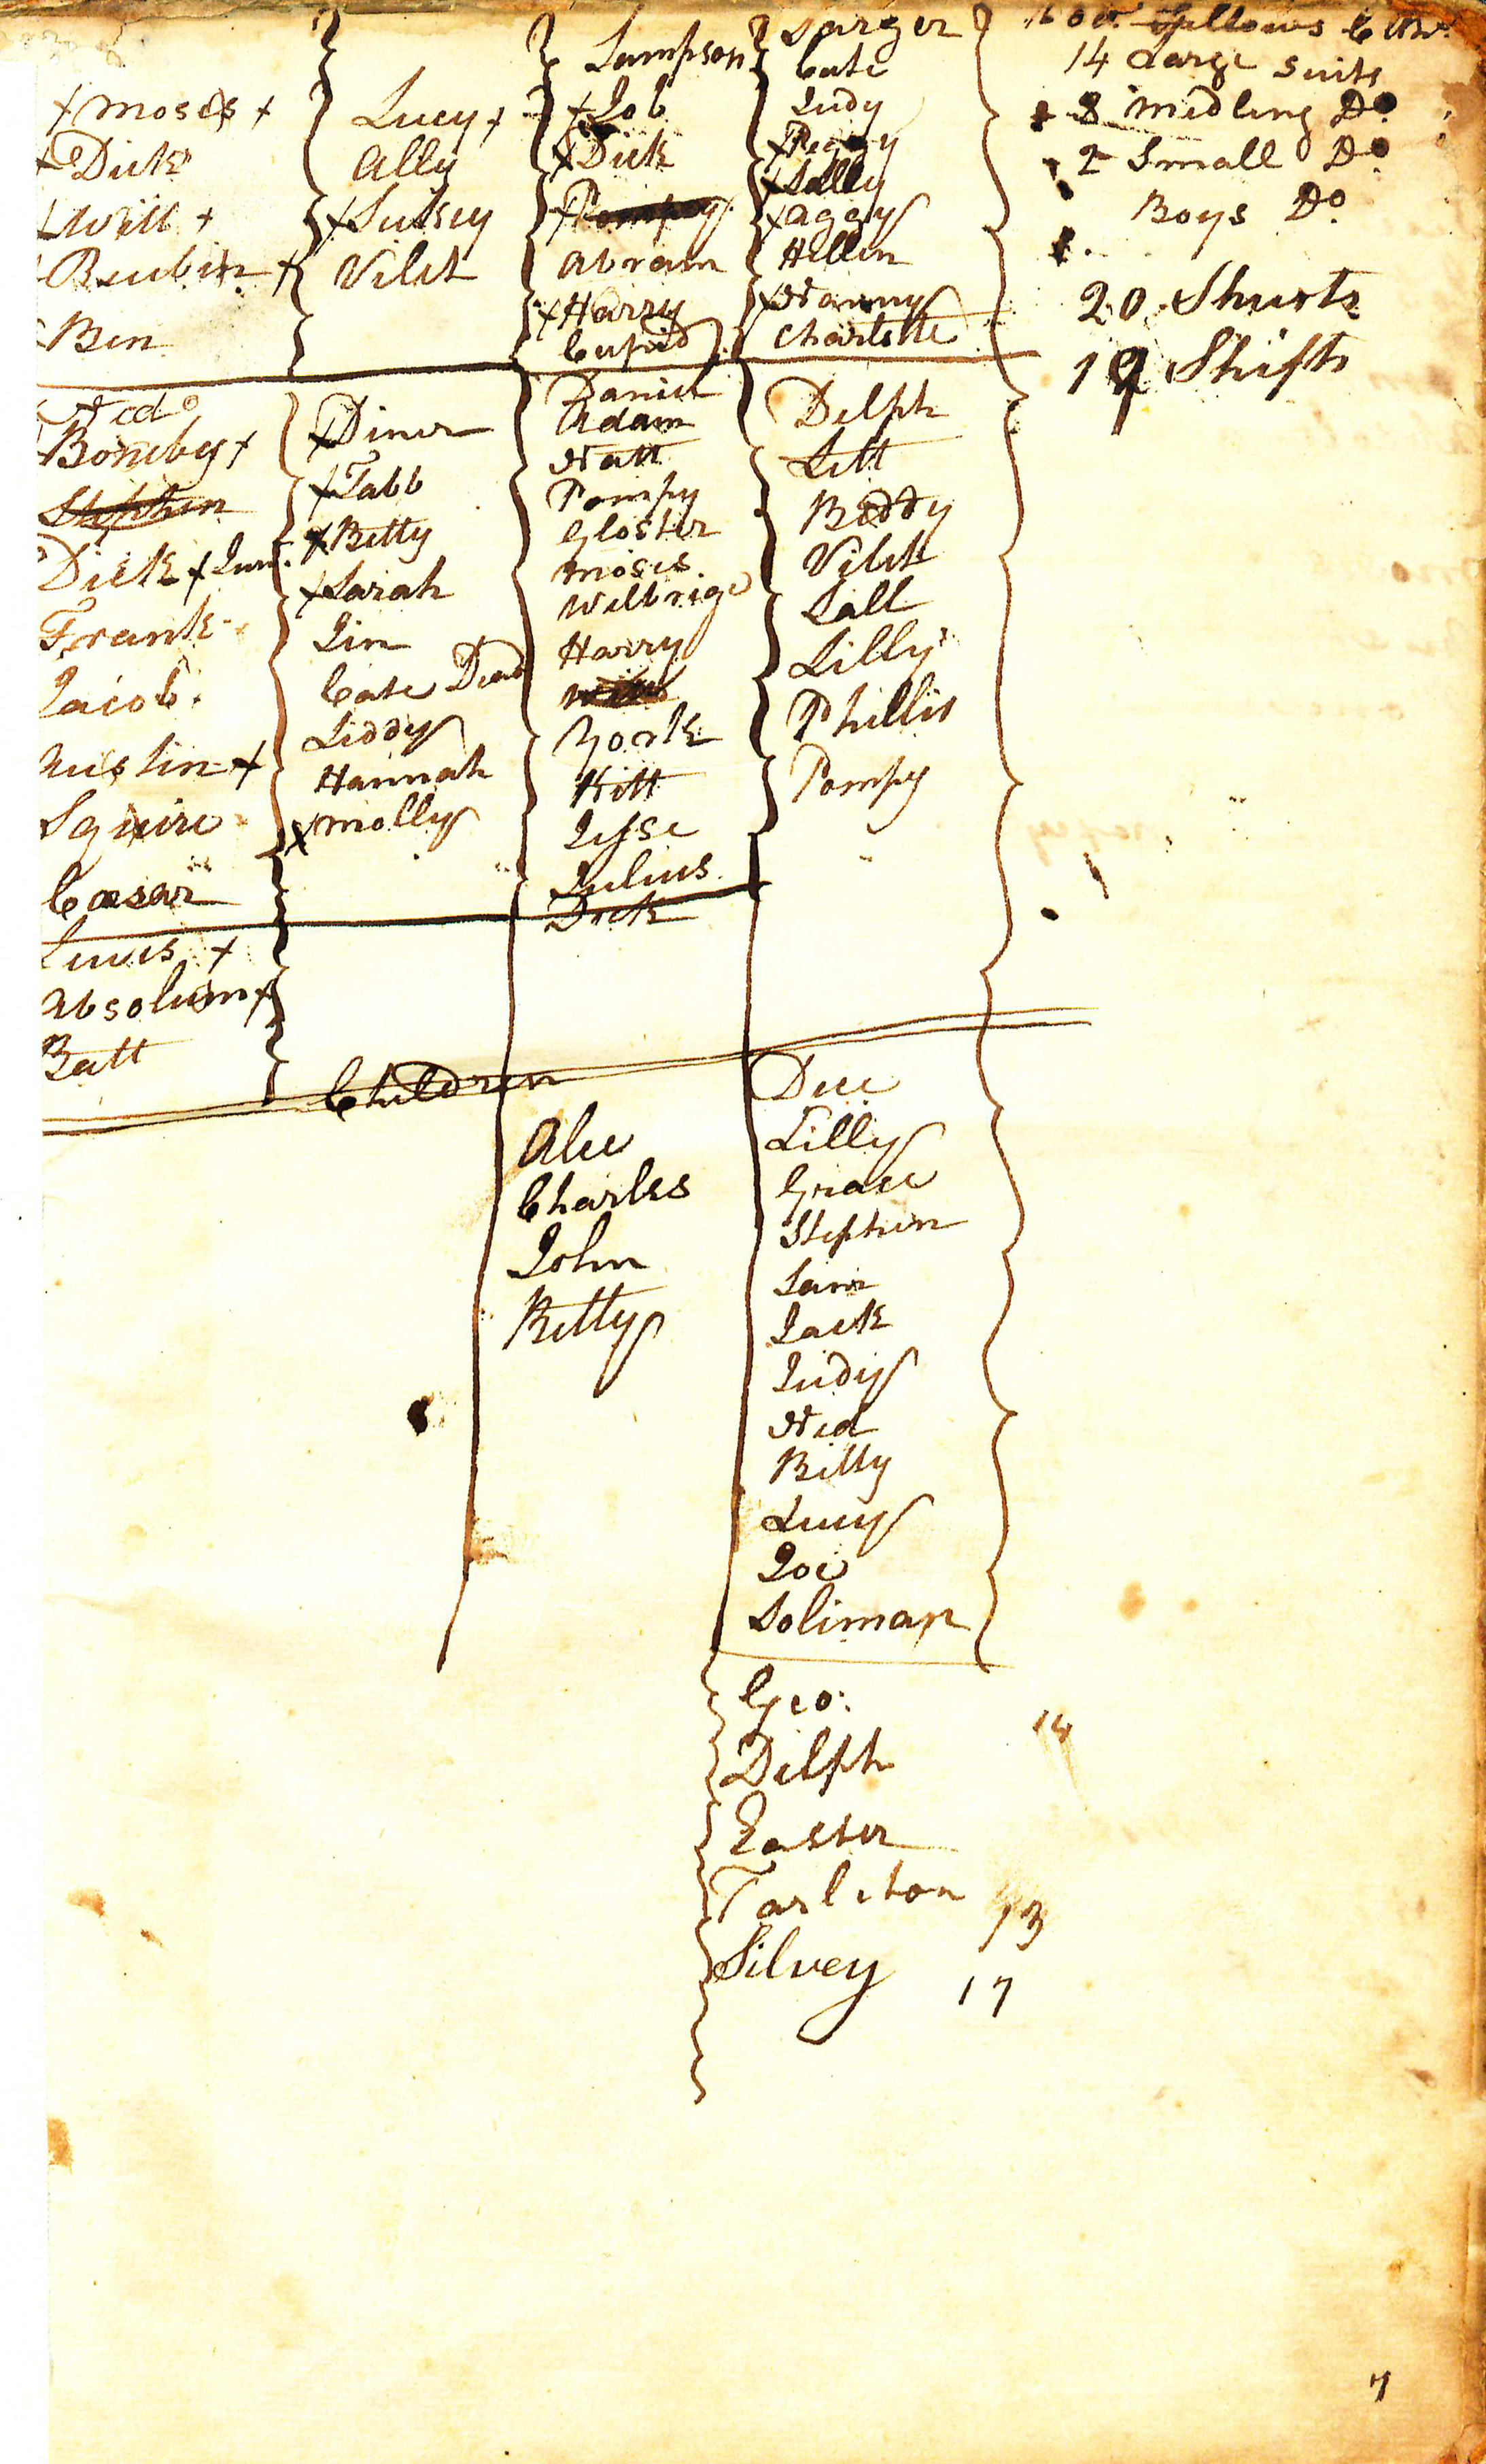 x Moses x
x Dick
x Will x
Reubin x
Ben
Ned
Boneby x
Stephen
Dick x Junr.
Frank
Jacob
Austin x
Squire
Cæsar
Lewis x
Absolum x
Batt
Lucy x
Ally
x Suksey
Vilet
x Diner
x Tabb
x Betty
x Sarah
Jin
Cate Dead
Liddy
Hannah
x Molly
Children
Sampson
x Job
x Dick
x Pompey
Abram
x Harry
Cupid
Daniel
Adam
Natt
Pompy
Gloster
Moses
Harry
Will
York
Kitt
Jesse
Julius
Dick
Alce
Charles
John
Betty
Larger
Cate
Judy
x Peggy
x Sally
x Aggy
Hellen
x Nanny
Charlotte
Delph
Lett
Biddy
Vilet
Sall
Lilly
Phillis
Pompy
Dice
Lilly
Grace
Stephen
Sam
Jack
Judy
Ned
Billy
Lucy
Joe
Soliman
Geo:
Delph
Easter
Tarleton 13
Silvey 17
fellows
14 Large Suits
8 Midling Do
2 Small Do
Boys Do
20 Shurts
19 Shifts
14
7